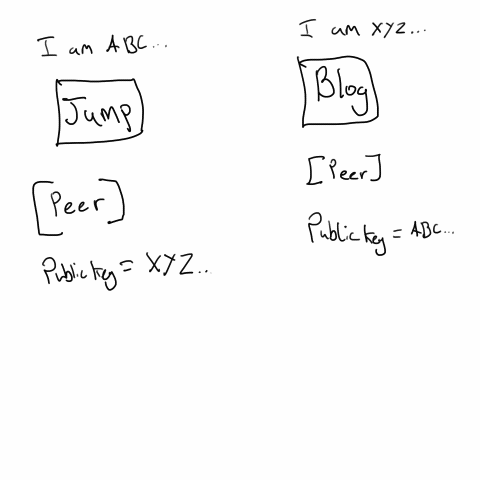 I am ABC...
Jump
[Peer]
Public key = XYZ...
I am XYZ...
Blog
[Peer]
Public key = ABC...